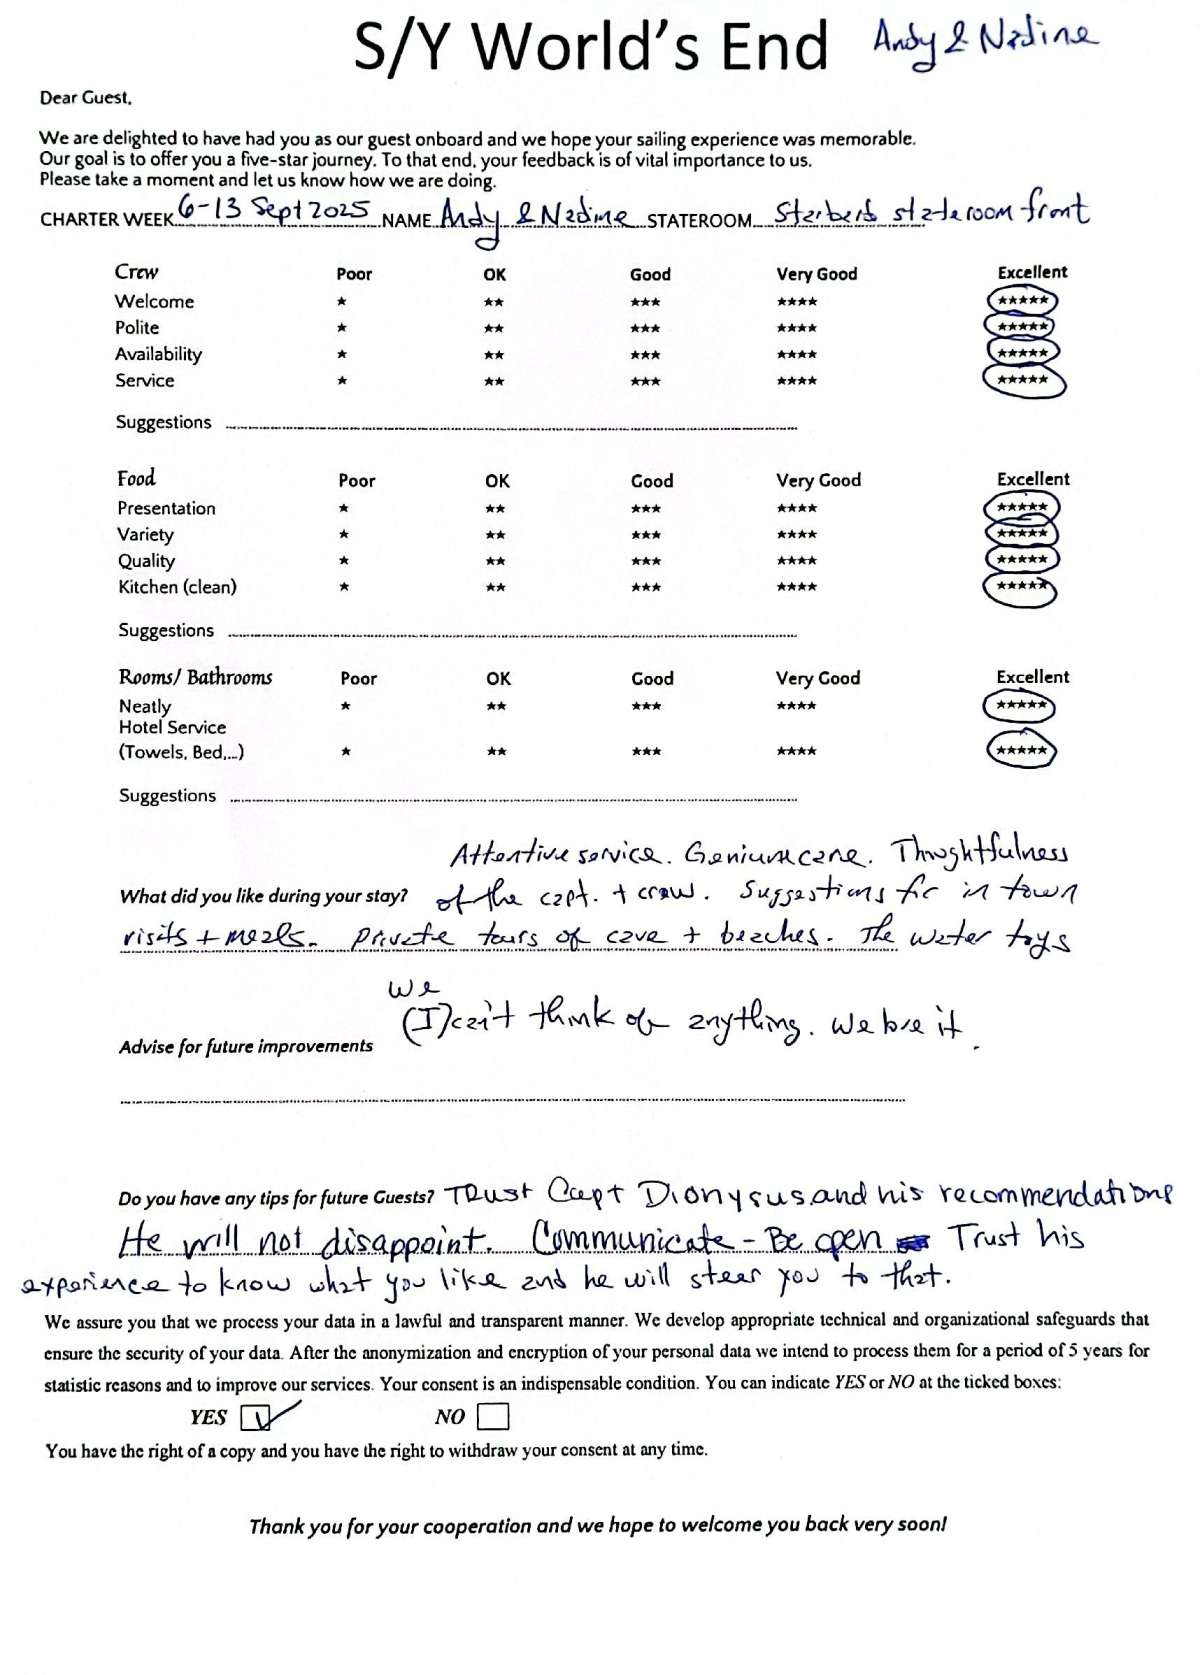 S/Y World's End Andy & Nadine
Dear Guest,
We are delighted to have had you as our guest onboard and we hope your sailing experience was memorable.
Our goal is to offer you a five-star journey. To that end, your feedback is of vital importance to us.
Please take a moment and let us know how we are doing.
CHARTER WEEK 6-13 Sept 2025 NAME Andy & Nadine STATEROOM Starbord stateroom front
Crew Poor OK Good Very Good Excellent
Welcome ★ ★★ ★★★ ★★★★ ★★★★★
Polite ★ ★★ ★★★ ★★★★ ★★★★★
Availability ★ ★★ ★★★ ★★★★ ★★★★★
Service ★ ★★ ★★★ ★★★★ ★★★★★
Suggestions
Food Poor OK Good Very Good Excellent
Presentation ★ ★★ ★★★ ★★★★ ★★★★★
Variety ★ ★★ ★★★ ★★★★ ★★★★★
Quality ★ ★★ ★★★ ★★★★ ★★★★★
Kitchen (clean) ★ ★★ ★★★ ★★★★ ★★★★★
Suggestions
Rooms/ Bathrooms Poor OK Good Very Good Excellent
Neatly ★ ★★ ★★★ ★★★★ ★★★★★
Hotel Service
(Towels, Bed,...) ★ ★★ ★★★ ★★★★ ★★★★★
Suggestions
Attentive service. care. Thoughtfulness
What did you like during your stay? of the capt. + crew. Suggestions for in town
visits + meals. private tours of cave + beaches. The water toys
we
(I) can't think of anything. We love it.
Advise for future improvements
Do you have any tips for future Guests? Trust Capt Dionysus and his recommendations
He will not disappoint. Communicate - Be open Trust his
experience to know what you like and he will steer you to that.
We assure you that we process your data in a lawful and transparent manner. We develop appropriate technical and organizational safeguards that
ensure the security of your data. After the anonymization and encryption of your personal data we intend to process them for a period of 5 years for
statistic reasons and to improve our services. Your consent is an indispensable condition. You can indicate YES or NO at the ticked boxes:
YES NO
You have the right of a copy and you have the right to withdraw your consent at any time.
Thank you for your cooperation and we hope to welcome you back very soon!